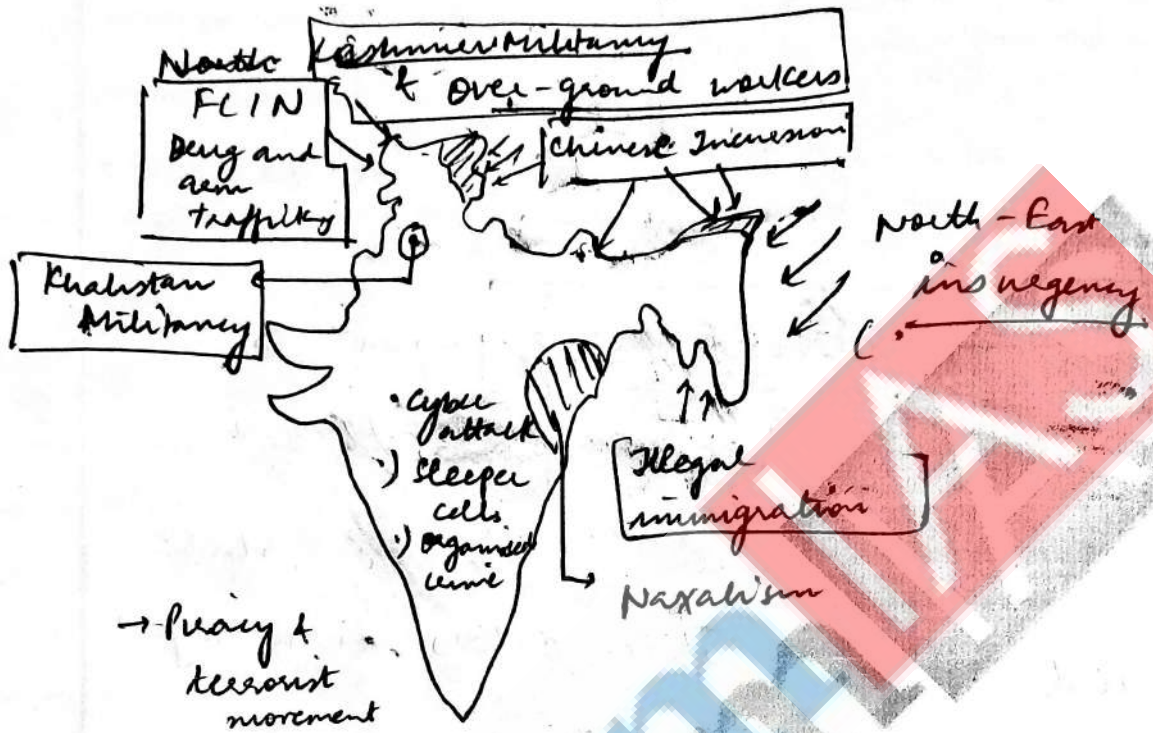 North
Kashmier Militancy
& Over-ground workers
FCIN
Drug and
arm
traffiking
Chinese Incursion
North-East
insurgency
Khalistan
Militancy
• Cyber
attack
•) Sleeper
cells
•) organised
crime
Illegal
immigration
Naxalism
→ Piracy &
terrorist
movement
IAS